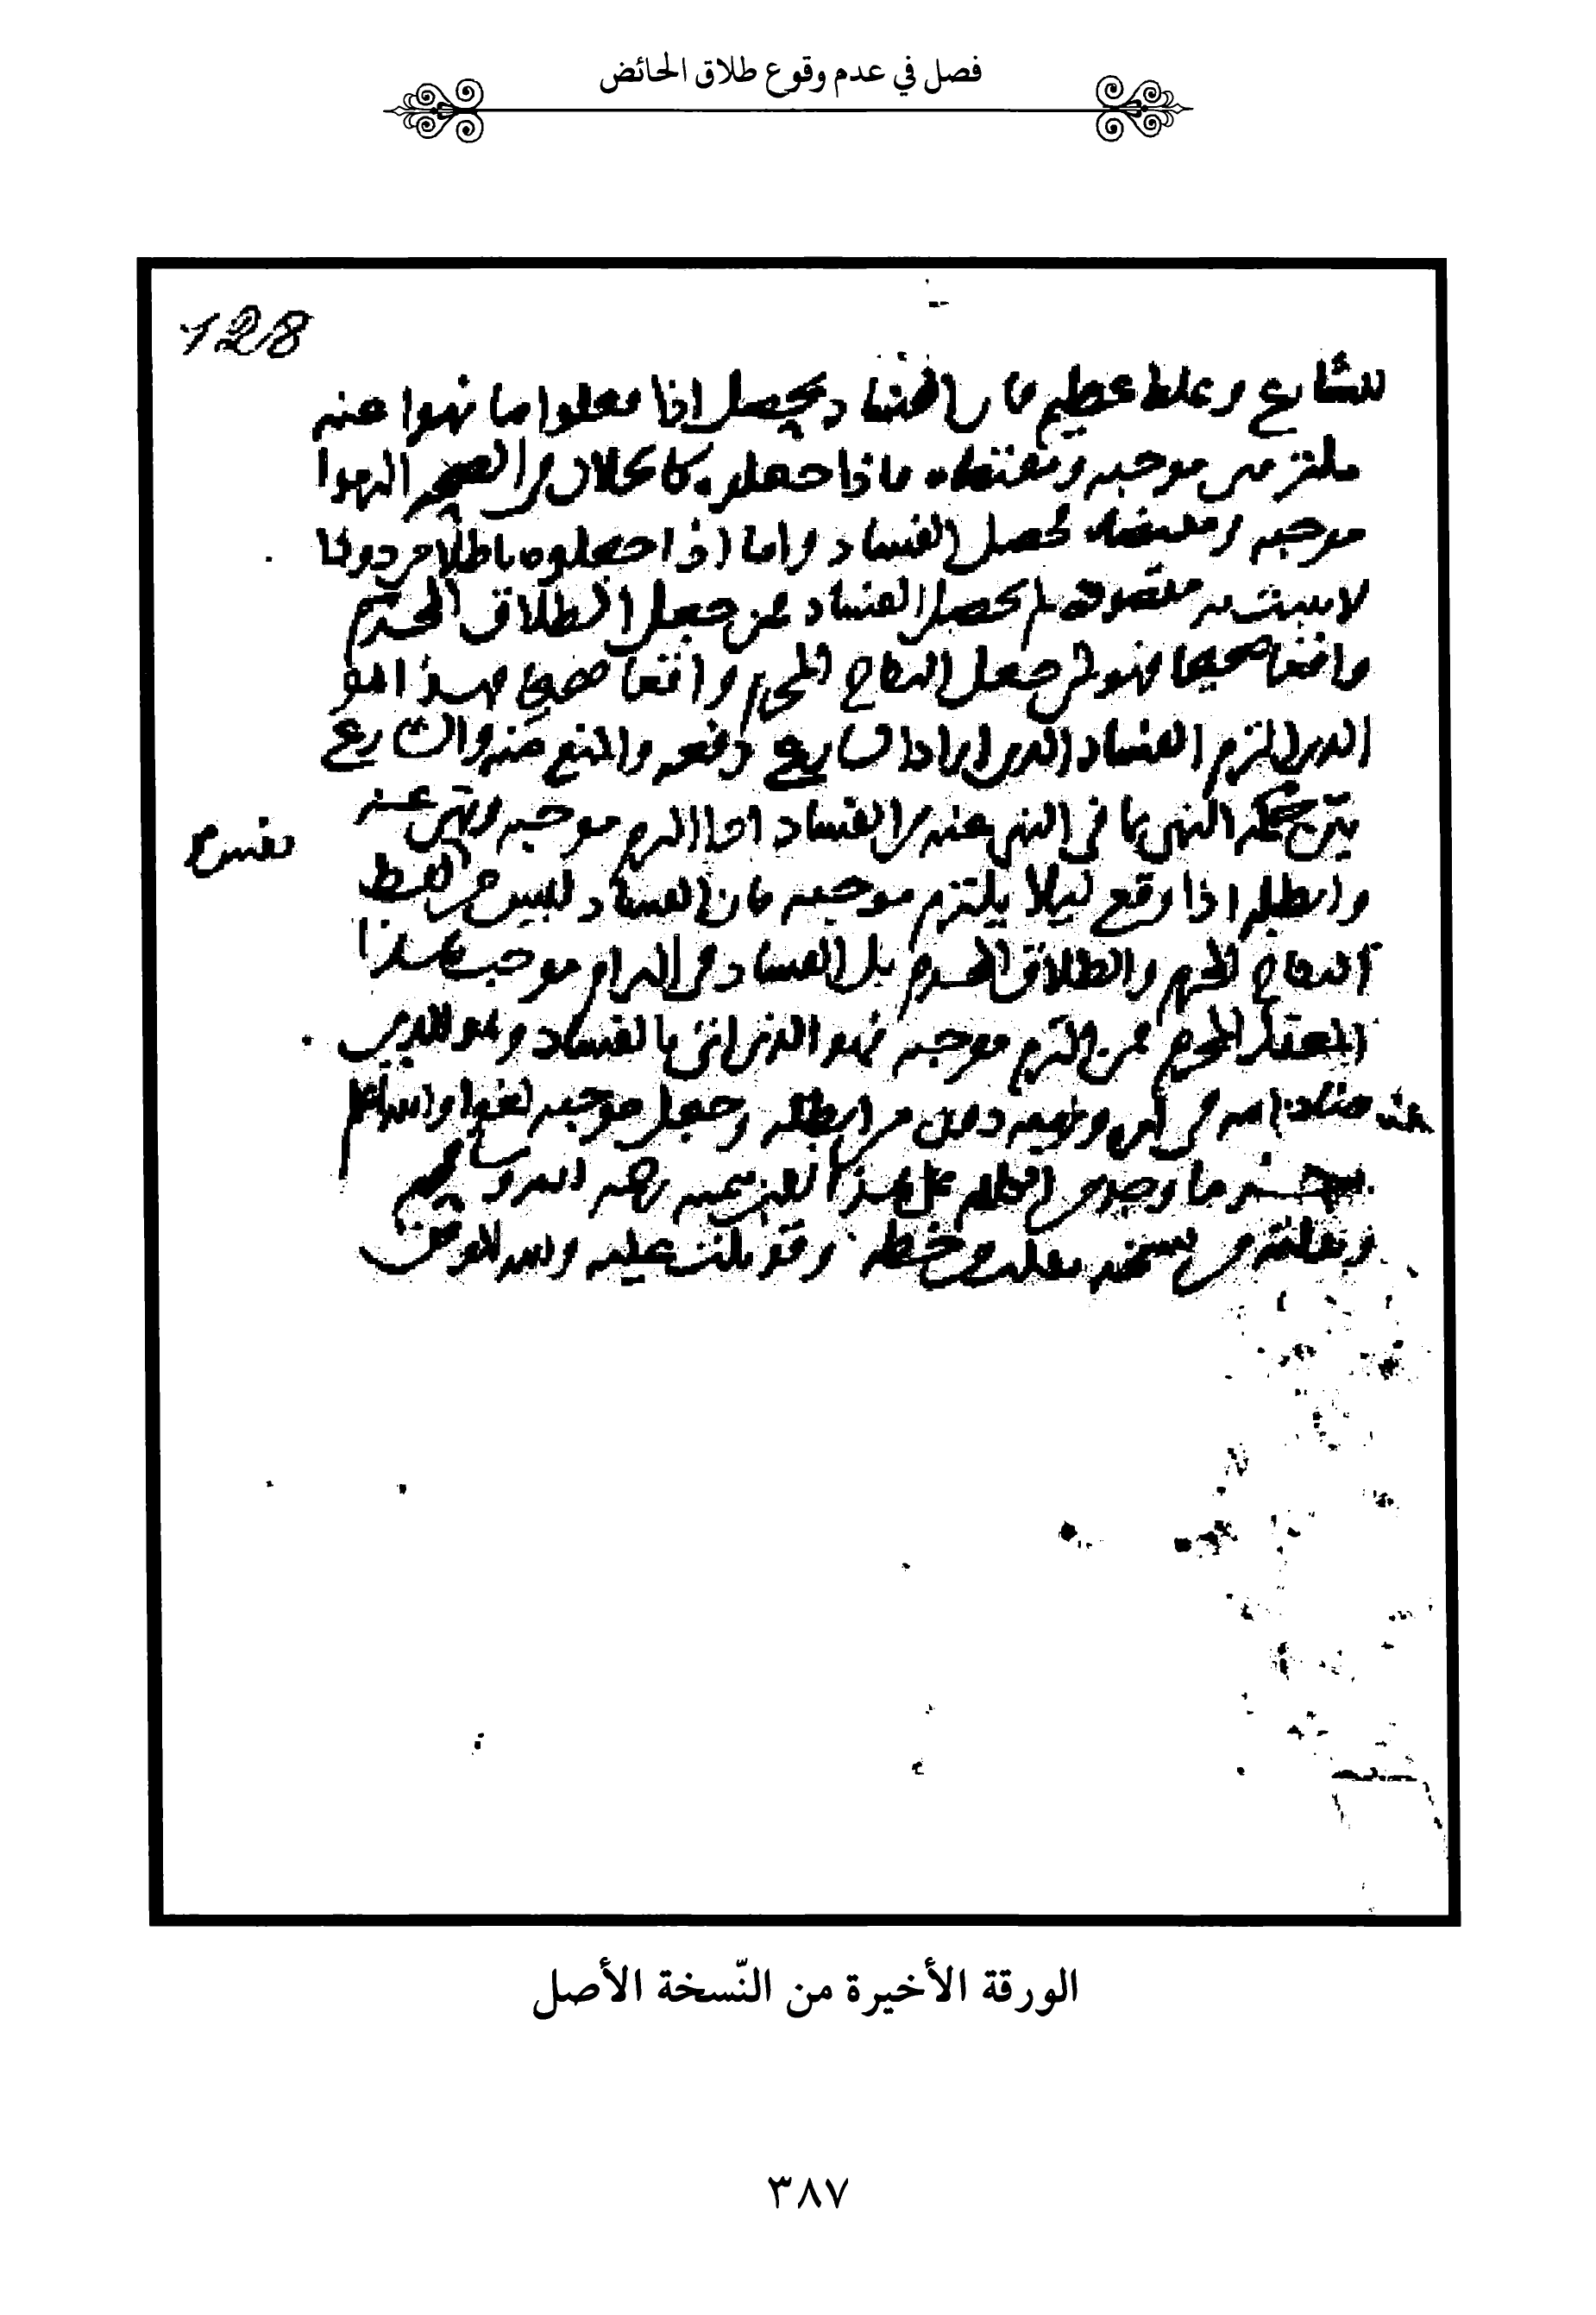 فصل في عدم وقوع طلاق الحائض
128
للشارع وغلط عظيم فان الفساد يحصل اذا فعلوا ما نهوا عنه
ملتزمين موجبه ومقتضاه فاذا جعلوه كالحلال
موجبه ومقتضاه لحصل الفساد واما اذا جعلوه باطلا مردودا
لا يثبت به مقصوده لم يحصل الفساد فمن جعل الطلاق المحرم
واقعا صحيحا فهو كمن جعل النكاح المحرم واقعا صحيحا فهذا هو
الذي الزم الفساد الذي اراد الشارع دفعه والمنع منه والشارع
النهي في النهي عنه من الفساد اذا التزم موجبه ونهى عنه
وابطله اذا وقع ليلا يلتزم موجبه فان الفساد ليس في لفظ
النكاح المحرم والطلاق المحرم بل الفساد في التزام موجب هذا
العقد المحرم فمن التزم موجبه فهو الذي اتى بالفساد وهو الذي
ضاد الله في امره ونهيه دون من ابطله وجعل موجبه لغوا والله اعلم
ما وجد من الكلام على هذا لابن تيميه رحمه الله
ونقلته من نسخه نقلت من خطه وقوبلت عليه والله الموفق
الورقة الأخيرة من النّسخة الأصل
٣٨٧